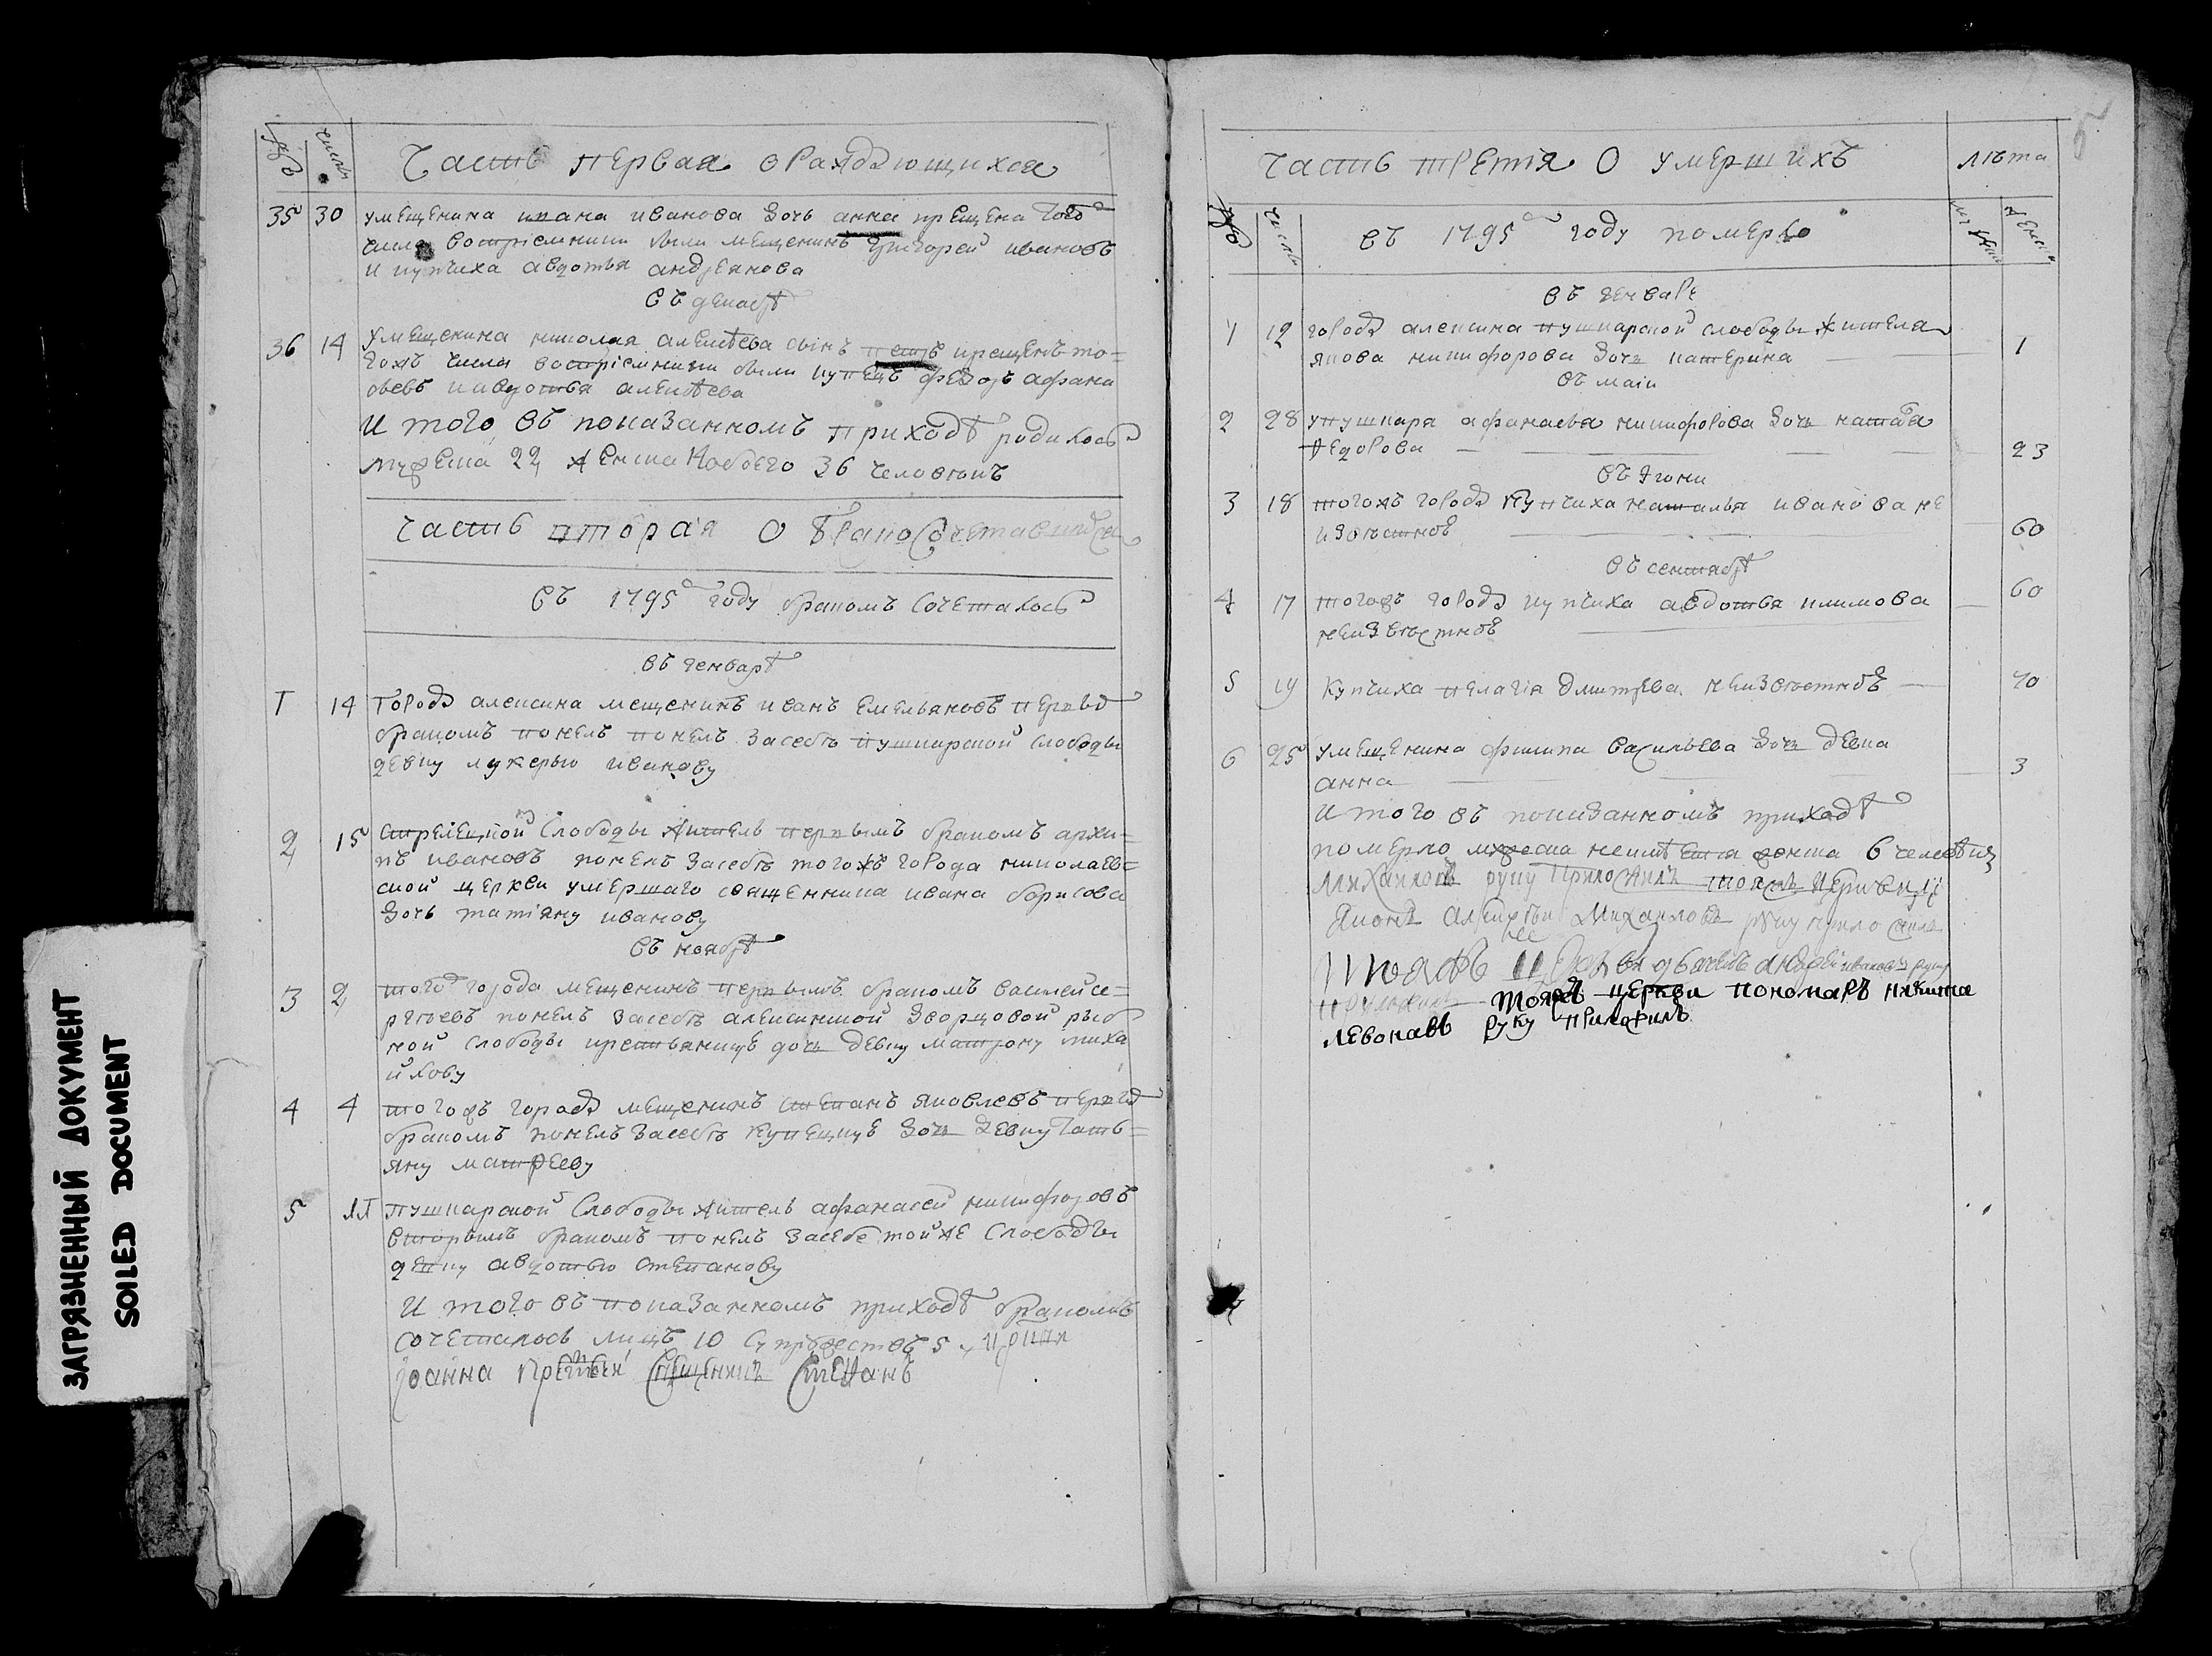 Часть первая о раждающихся
35 30 умещенина ивана иванова дочь анна крещена того
числа восприемники были мещенинъ григорей ивановъ
и купчиха авдотья андреянова
въ декабрѣ
36 14 Умещенина николая алексѣева сынъ крещенъ то=
гожъ числа восприемники были купецъ федоръ афана
сьевъ и авдотья алексѣева
И того въ показанномъ приходѣ родилось
мужеска 22 женска обоего 36 человѣкъ
Часть вторая О бракосочетавшихся
въ 1795 году бракомъ сочеталось
въ генварѣ
1 14 Города алексина мещенинъ иванъ емельяновъ первы
бракомъ понелъ понелъ засебя пушкарской слободы
девку лукерью иванову
2 15 стрелецкой слободы житель первымъ бракомъ архи=
пъ ивановъ понелъ засебя тогожъ города николаев=
ской церкви умершаго священника ивана борисова
дочь татияну иванову
въ ноябрѣ
3 2 того города мещенинъ первымъ бракомъ василей се=
ргѣевъ понелъ засебя алексинской дворцовой рыб
ной слободы дочь девку матрону миха
йлову
4 4 тогожъ города мещенинъ степанъ яковлевъ первы
бракомъ понелъ засебя дочь девку тать=
яну матфееву
5 11 пушкарской слободы житель афанасей никифоровъ
вторымъ бракомъ понелъ засебе тойже слободы
девку авдотью степанову
И того въ показанномъ приходѣ бракомъ
сочеталось лицъ 10 супружествъ 5
иоанна предтечи священникъ стефанъ
часть третия О умершихъ лѣта
въ 1795 году померло
въ генваре
1 12 города алексина пушкарской слободы жителя
якова никифорова дочь катерина 1
въ маии
2 28 упушкаря афанасья никифорова дочь
федорова 23
въ июни
3 18 тогожъ города купчиха наталья иванова не
извѣстнов 60
въ сентябрѣ
4 17 тогожъ города купчиха авдотья климова 60
неизвѣстнов
5 19 купчиха пелагия дмитрева неизвѣстнов 70
6 25 умещенина филипа васильева дочь девка
анна 3
И того въ показанномъ приходѣ
померло мужеска женска 6 человѣкъ
михайловъ руку приложилъ тояжъ церкви
диаконъ михайловъ руку приложилъ
тояжъ церкви дьячекъ андрей ивановъ руку
приложилъ тояжъ церкви пономарь никита
левонавъ руку приложилъ
ЗАГРЯЗНЕННЫЙ ДОКУМЕНТ
SOILED DOCUMENT